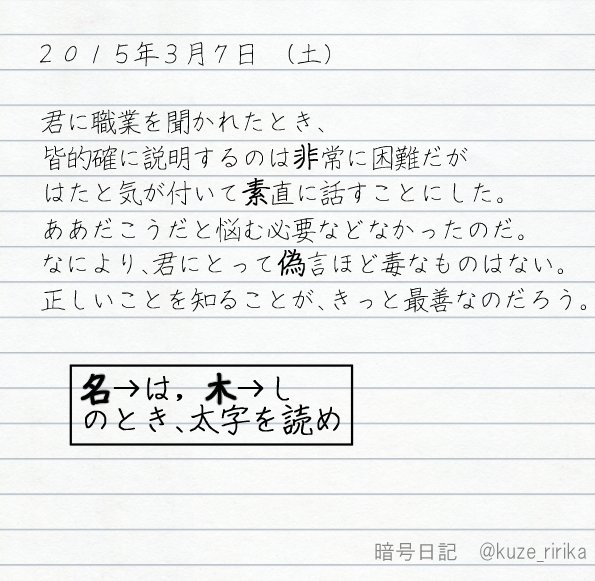 ２０１５年３月７日　（土）
君に職業を聞かれたとき、
皆的確に説明するのは非常に困難だが
はたと気が付いて素直に話すことにした。
ああだこうだと悩む必要などなかったのだ。
なにより、君にとって偽言ほど毒なものはない。
正しいことを知ることが、きっと最善なのだろう。
名→は，木→し
のとき、太字を読め
暗号日記　@kuze_ririka